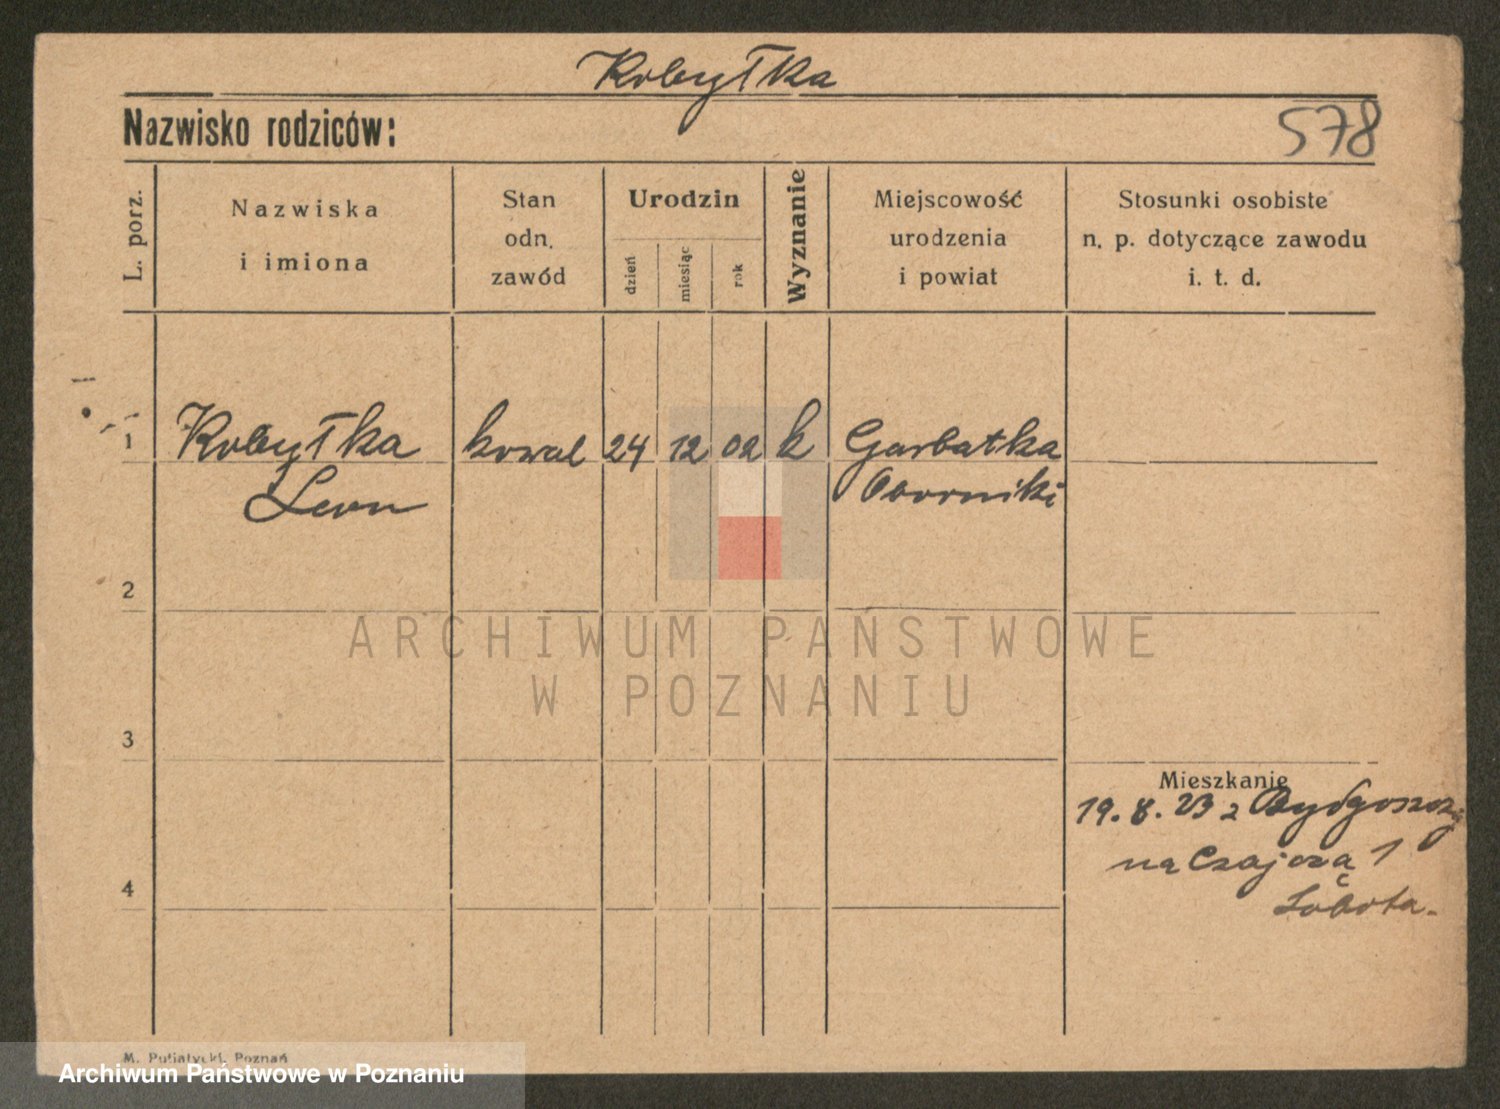 Kobyłka
Nazwisko rodziców:
578
L. porz.
Nazwiska
i imiona
Stan
odn.
zawód
Urodzin
dzień
miesiąc
rok
Wyznanie
Miejscowość
urodzenia
i powiat
Stosunki osobiste
n. p. dotyczące zawodu
i. t. d.
1 Kobyłka kowal 24 12 02 k Garbatka
Leon Oborniki
2
ARCHIWUM PAŃSTWOWE
W POZNANIU
3
Mieszkanie
19. 8. 23 z Bydgoszczy
na Czajczą 1
Sobota.
4
M. Putiatycki, Poznań
Archiwum Państwowe w Poznaniu